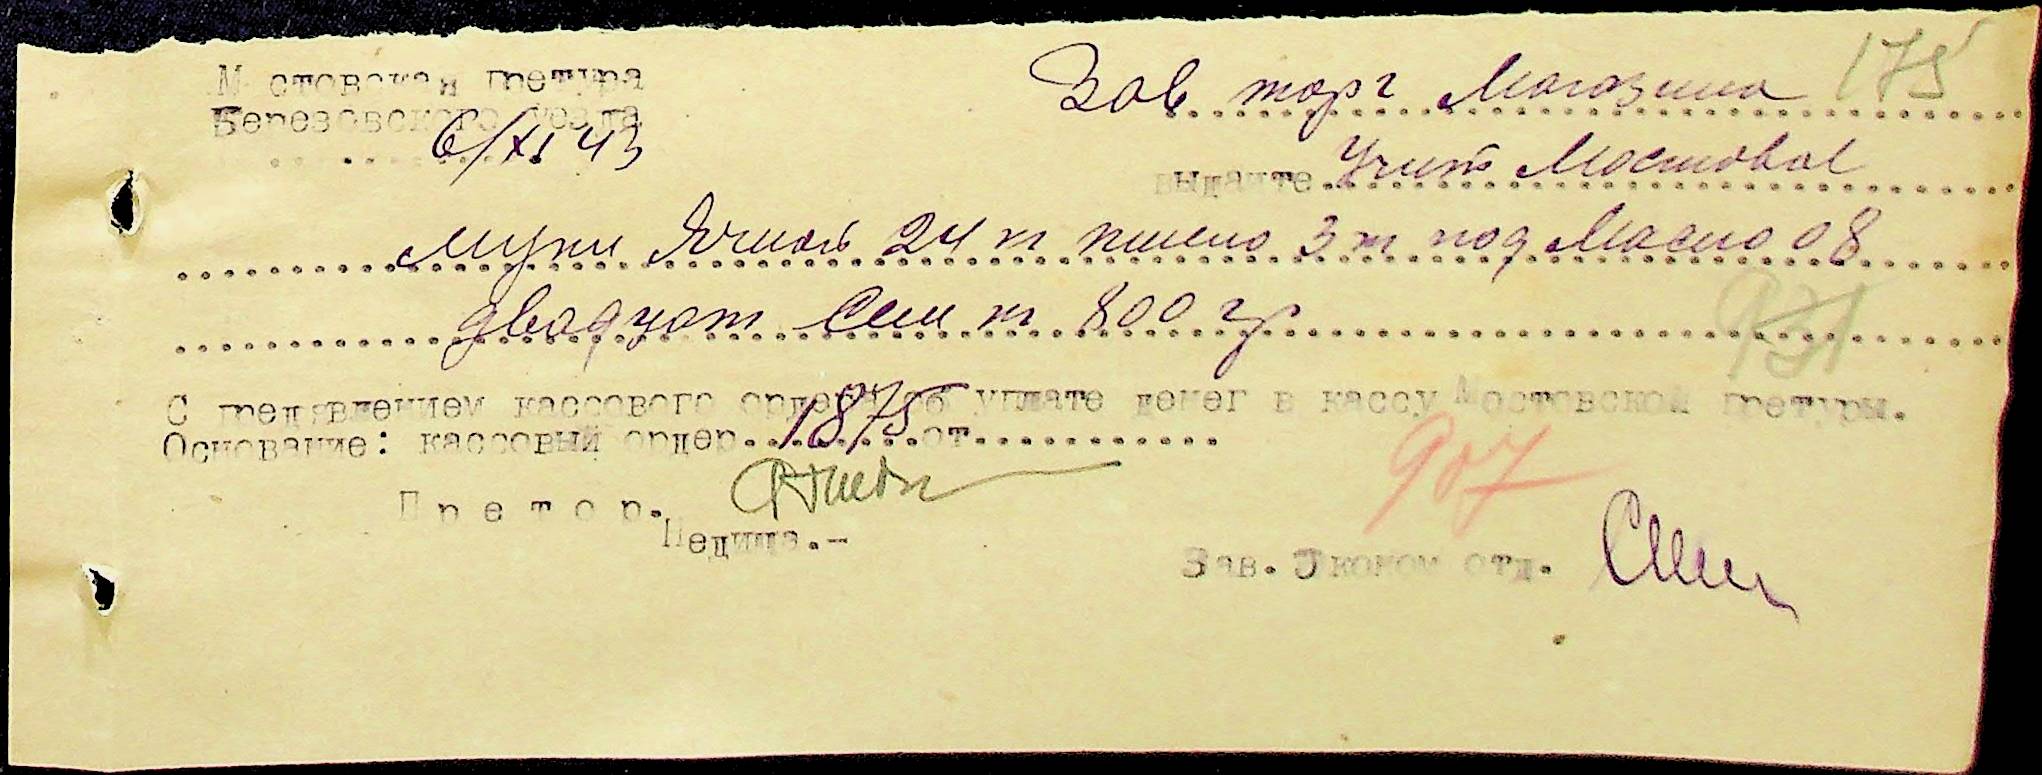 Мостовская претура
Березовского уезда
6/XI 43
175
Зав торг Магазина
выдайте Учит Мостовое
муки Ячмень 24 кг пшено 3 кг под Масло 08
двадцат Сем кг 800 гр
931
С предявлением кассового ордера об уплате денег в кассу Мостовской претуры.
Основание: кассовый ордер 1875 от
907
Претор.
Педица.-
Зав. Эконом отд.